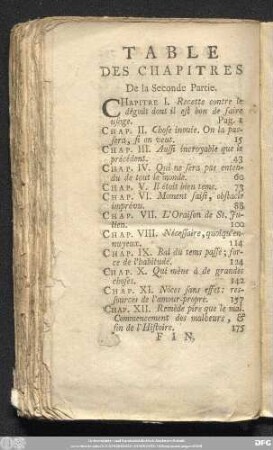 TABLE
DES CHAPITRES
De la Seconde Partie.
CHAPITRE I. Recette contre le
dégoût dont il est bon de faire
usage. Pag. 1
CHAP. II. Chose inouïe. On la pas-
sera, si on veut. 15
CHAP. III. Aussi incroyable que le
précédent. 43
CHAP. IV. Qui ne sera pas enten-
du de tout le monde. 60
CHAP. V. Il étoit bien tems. 73
CHAP. VI. Moment saisi, obstacle
imprévu. 88
CHAP. VII. L'Oraison de St. Ju-
lien. 100
CHAP. VIII. Nécessaire, quoiqu'en-
nuyeux. 114
CHAP. IX. Bal du tems passé; for-
ce de l'habitude. 124
CHAP. X. Qui mène à de grandes
choses. 142
CHAP. XI. Nôces sans effet: res-
sources de l'amour-propre. 157
CHAP. XII. Remède pire que le mal.
Commencement des malheurs, &
fin de l'Histoire. 175
FIN,